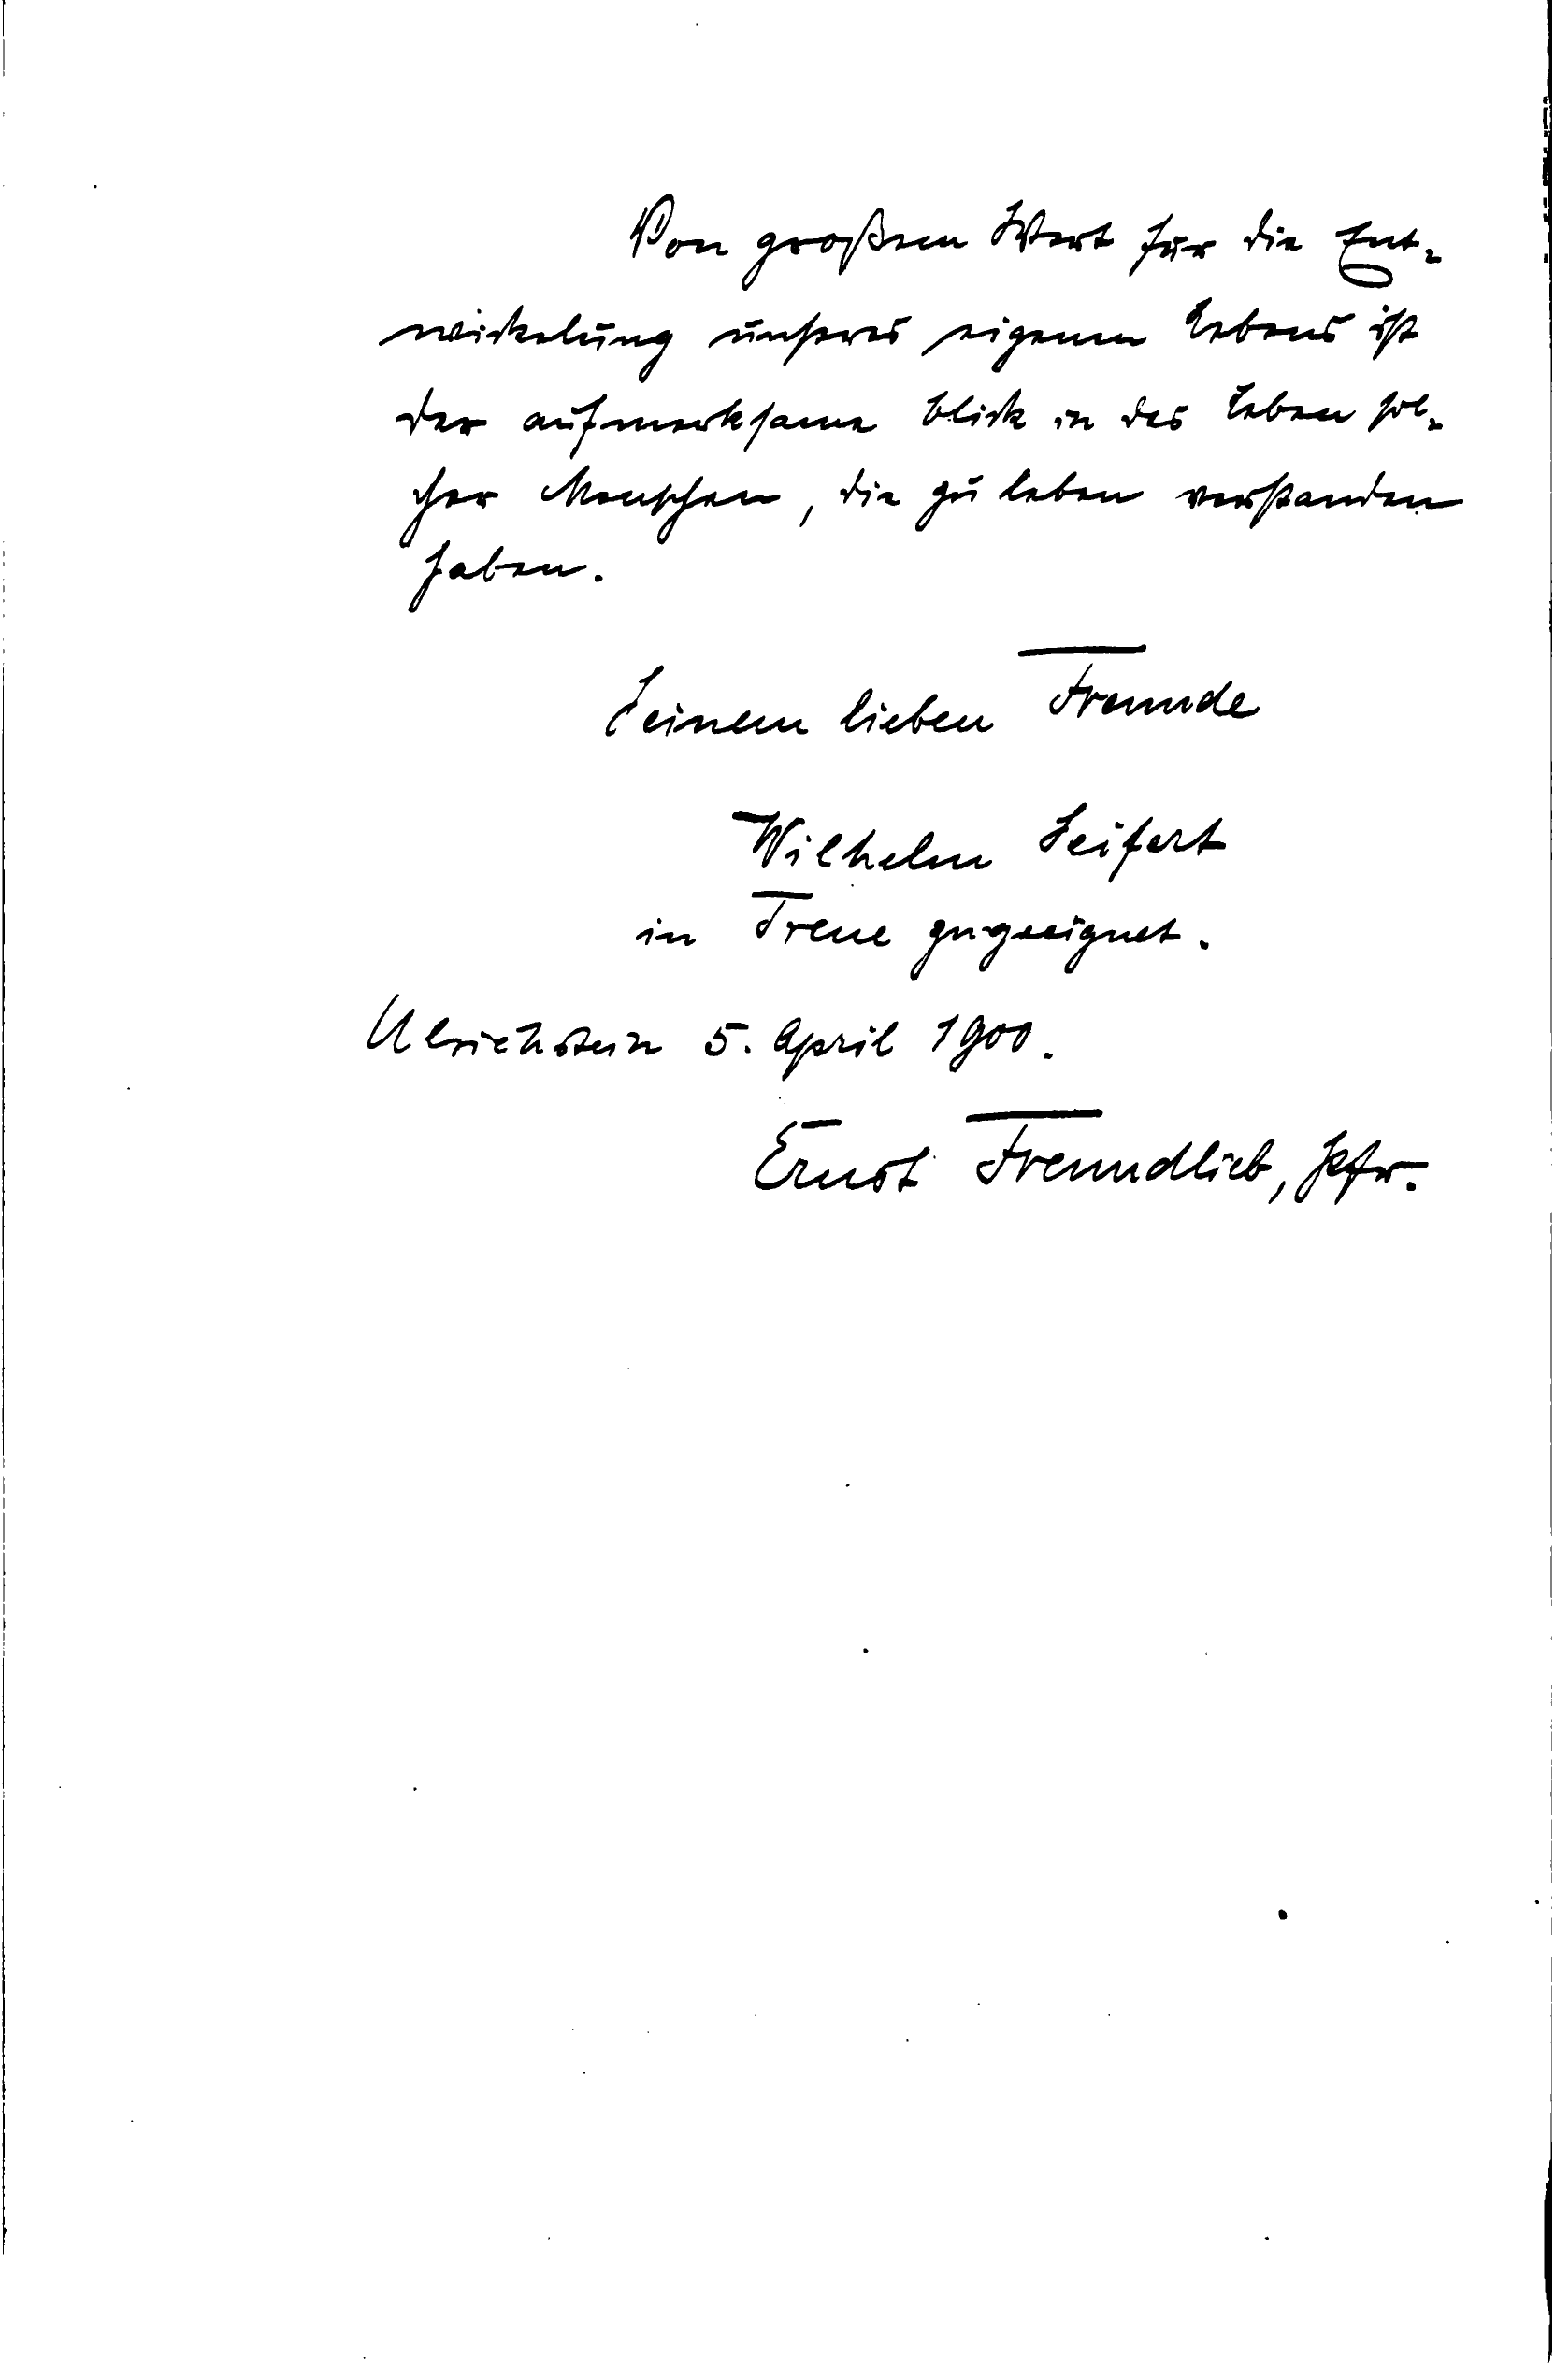 Von großem Wert für die Ent-
wickelung unseres eigenen Lebens ist
der aufmerksame Blick in das Leben sol-
cher Menschen, die zu leben verstanden
haben.
Seinem lieben Freunde
Wilhelm Seifert
in Treue zugeeignet.
Ulrichstein 5. April 1900.
Ernst Freundlieb,